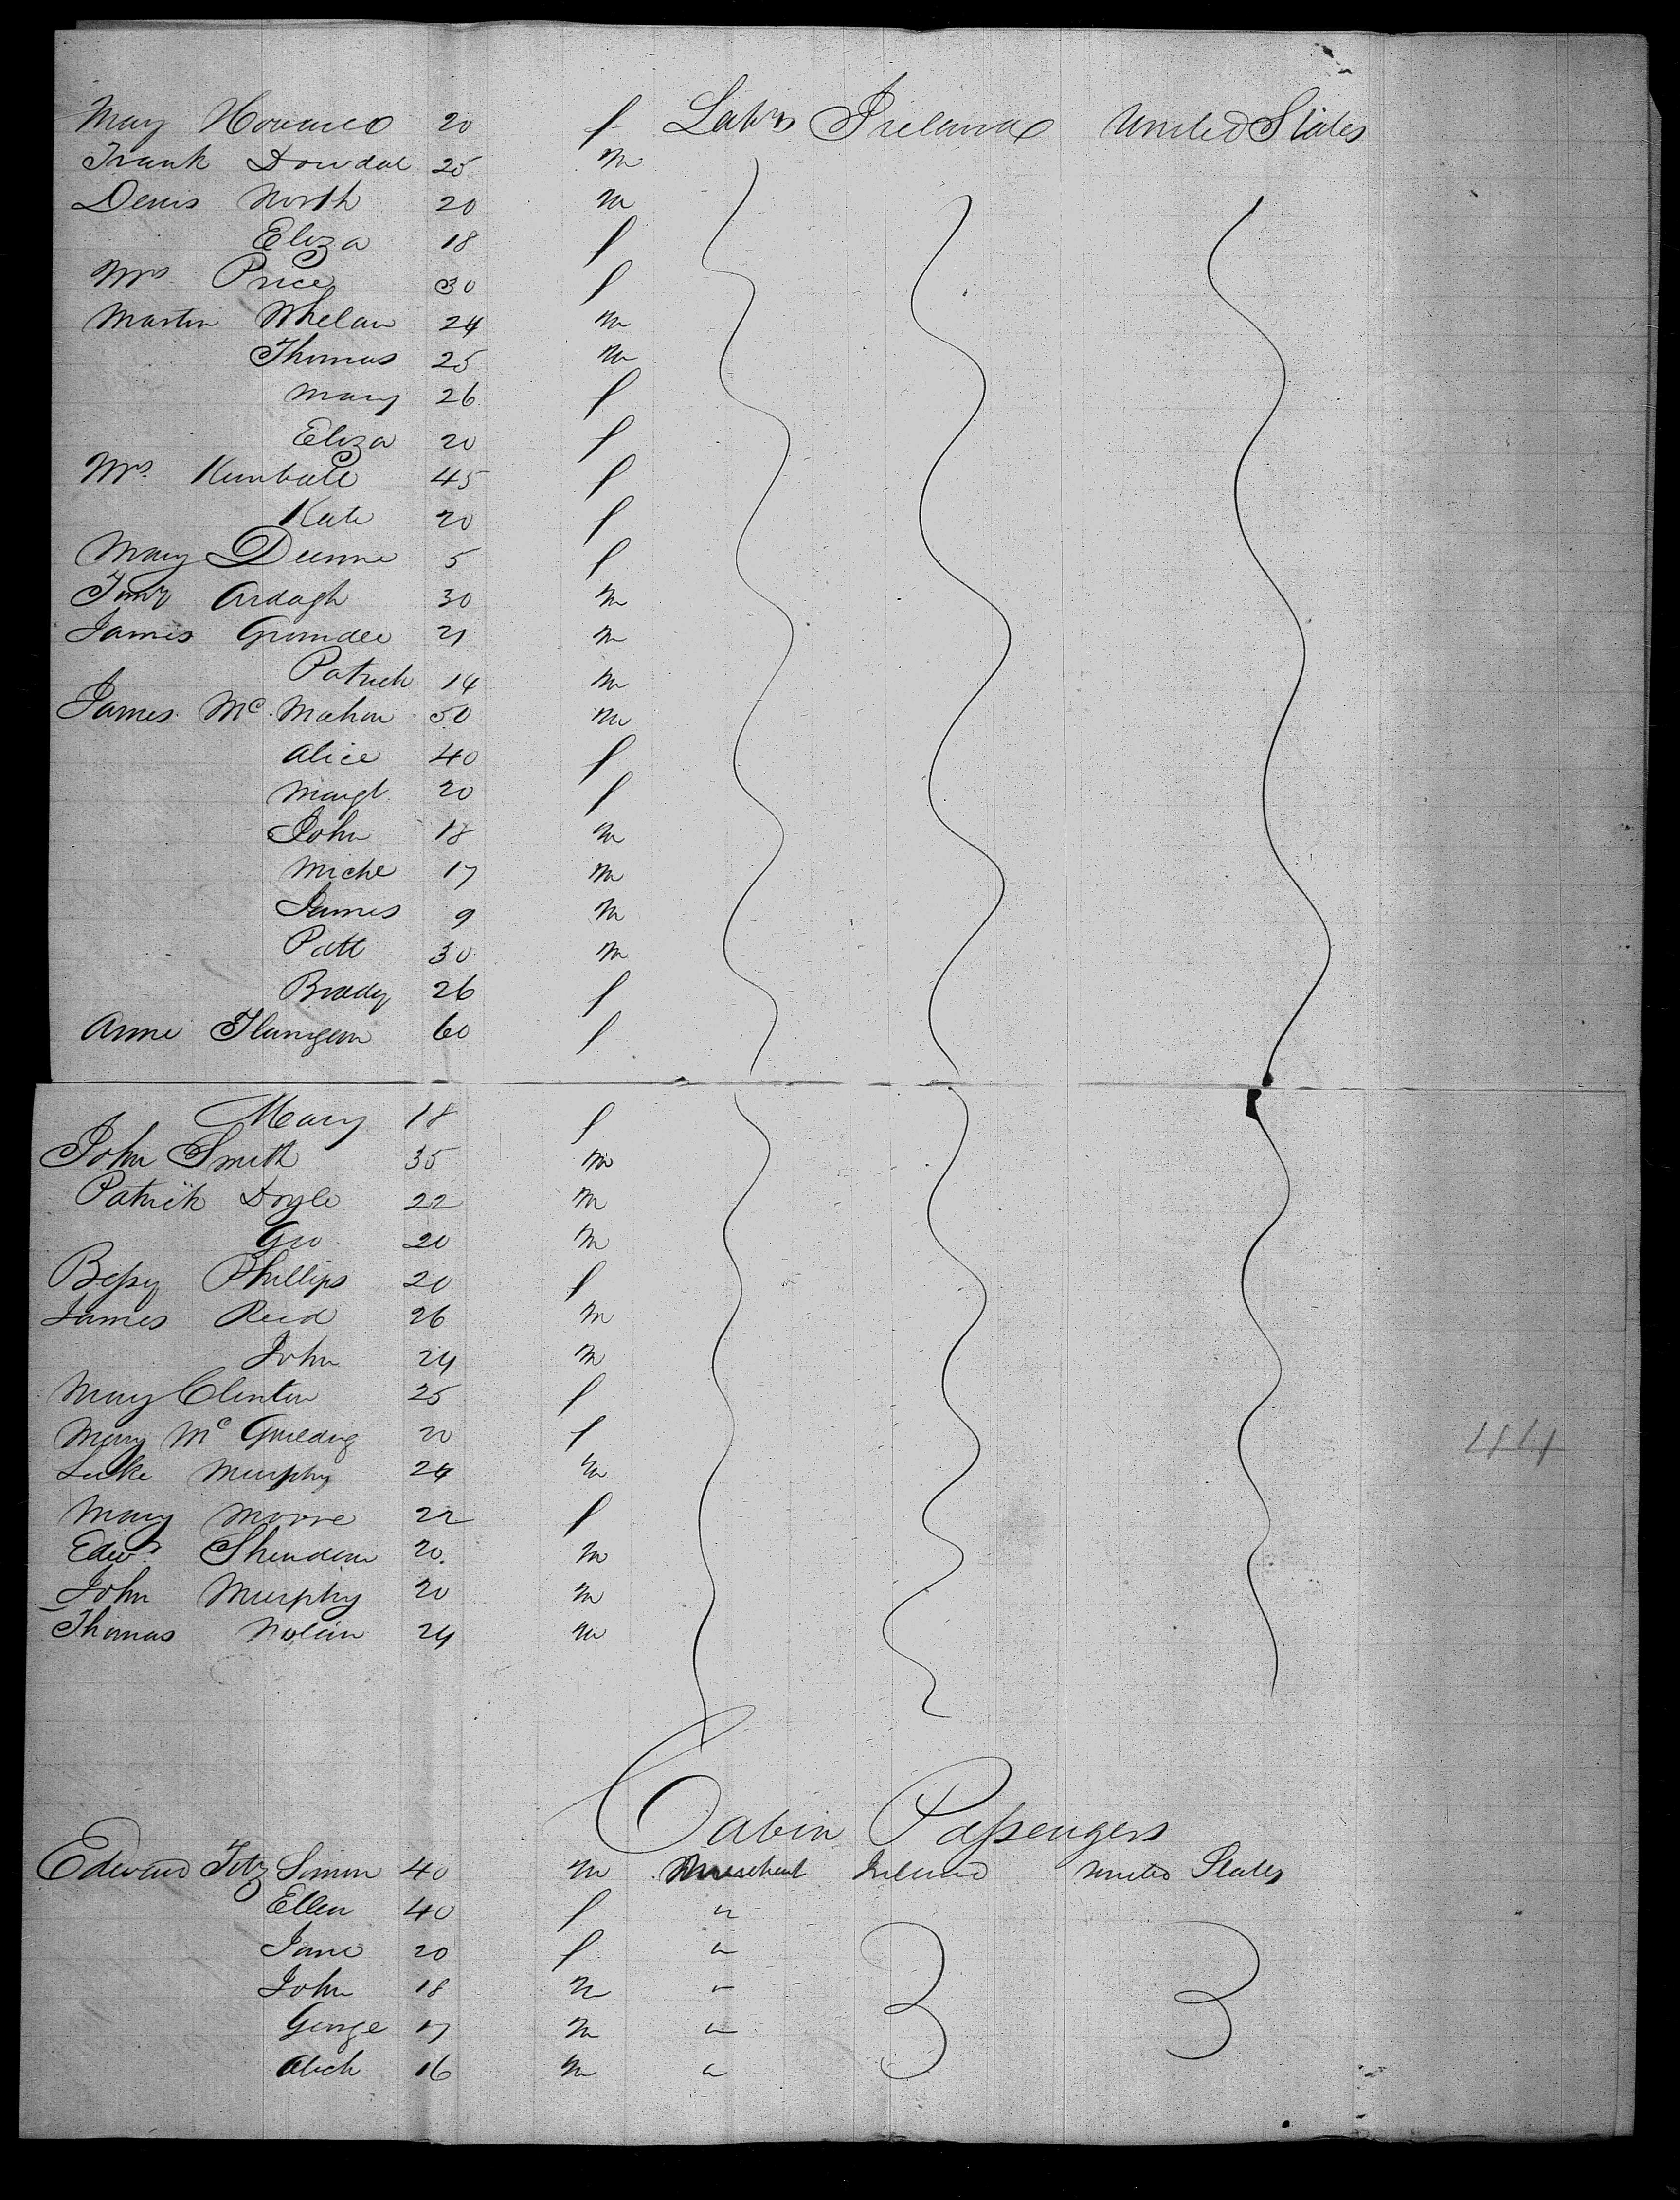 Mary Howard 20 f Labrs Ireland United States
Frank Dowdal 25 m
Denis North 20 m
Eliza 18 f
Mrs Price 30 f
Martin Whelan 24 m
Thomas 25 m
Mary 26 f
Eliza 20 f
Mrs. Kimball 45 f
Kate 20 f
Mary Dunne 5 f
Ardagh 30 m
James 21 m
Patrick 14 m
James Mc. Mahon 50 m
Alice 40 f
Margt 20 f
John 18 m
Miche 17 m
James 9 m
Patt 30 m
Biddy 26 f
Anne Flanigan 60 f
Mary 18 f
John Smith 35 m
Patrick Doyle 22 m
Geo 20 m
Bessy Phillips 20 f
James Reid 26 m
John 24 m
Mary Clinton 25 f
Mary Mc 20 f
Luke Murphy 24 m
Mary Moore 22 f
Edwd. Sheridan 20. m
John Murphy 20 m
Thomas Nolan 24 m
Cabin Passengers
Edward Fitz Simon 40 m Merchant Ireland United States
Ellen 40 f "
Jane 20 f "
John 18 m "
George 17 m "
Alick 16 m "